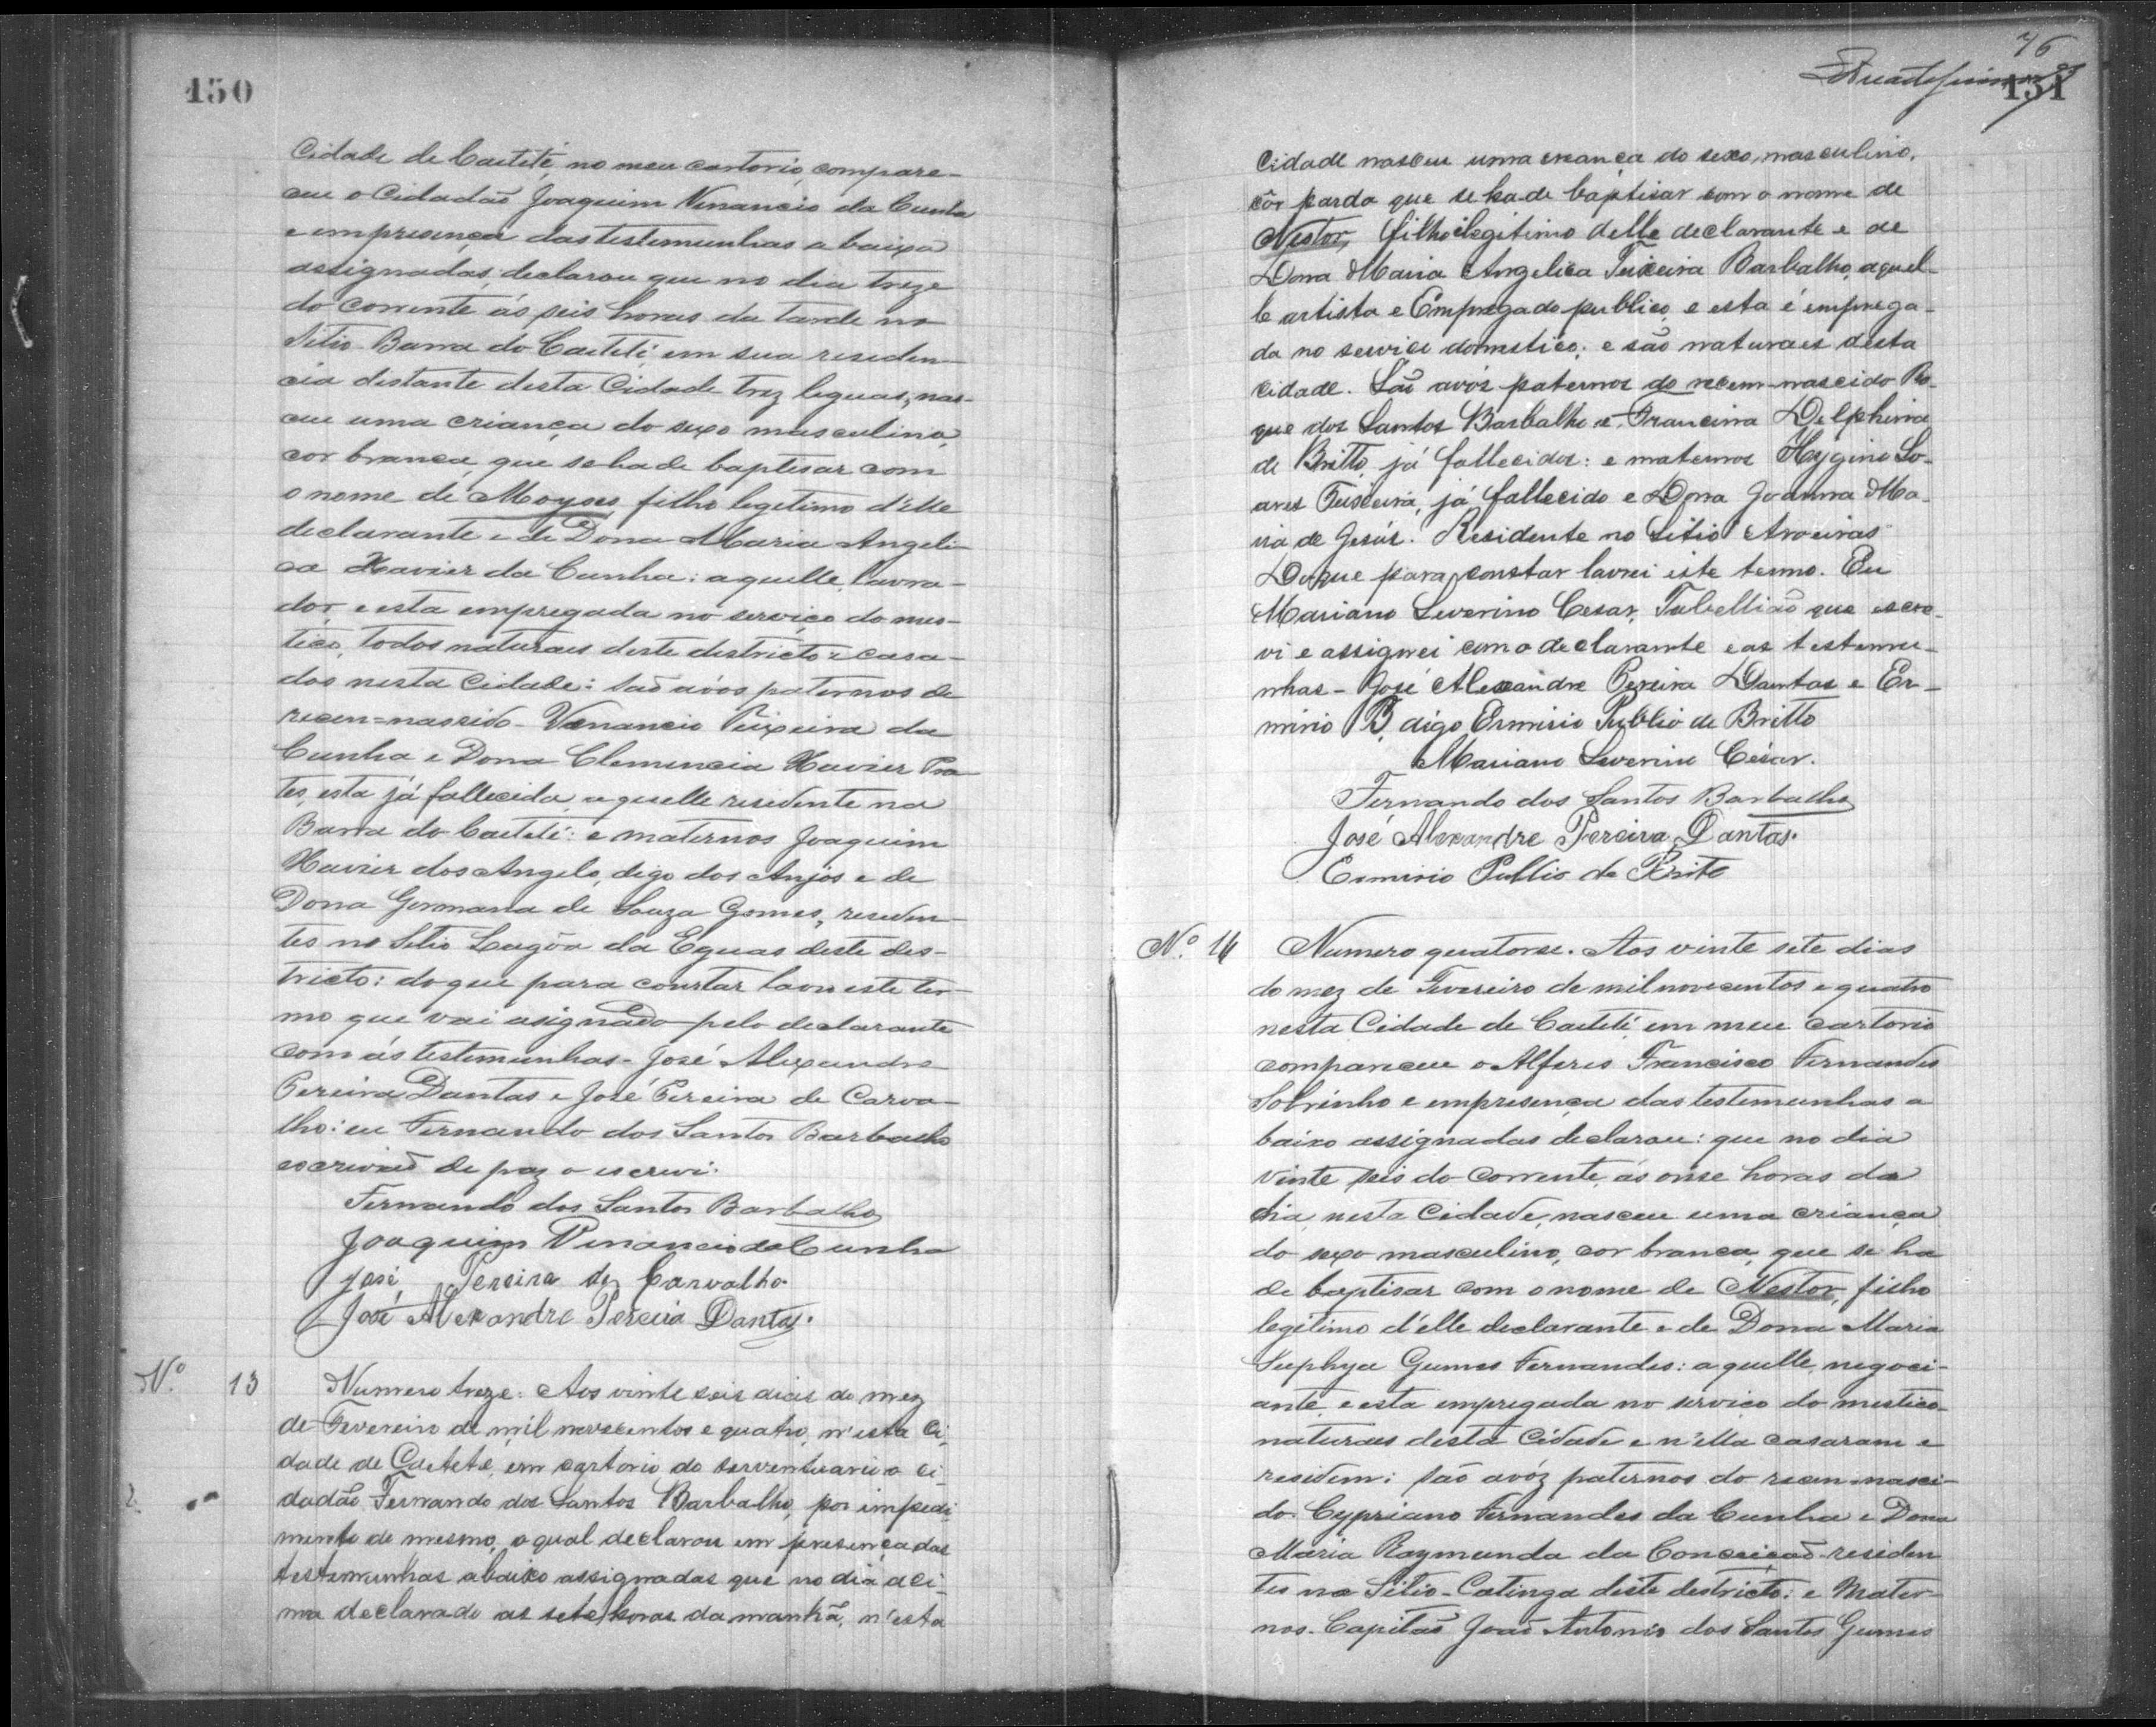 150
Cidade de Caeteté, no meu cartorio, compare-
ceu o Cidadaõ Joaquim Venancio da Cunha
e empresença das testemunhas a baixo
assignadas, declarou que no dia treze
do corrente ás seis horas da tarde no
Sitio Barra do Caeteté em sua residen-
cia distante desta Cidade trez leguas, nas-
ceu uma criança do sexo masculino,
cor branca, que se hade baptisar com
o nome de Moyses, filho legitimo d'elle
declarante e de Dona Maria Angeli-
ca Xavier da Cunha: aquelle lavra-
dor, e esta empregada no serviço do mes-
tico, todos naturaes deste districto e casa-
dos nesta Cidade: saõ avós paternos do
recem=nascido Venancio Teixeira da
Cunha e Dona Clemencia Xavier Pra-
tes, esta já fallecida, aquelle residente na
Barra do Caeteté: e maternos Joaquim
Xavier dos Angelo, digo dos Anjos e de
Dona Germana de Souza Gomes, residen-
tes no Sitio Lagôa da Eguas deste des-
tricto: do que para constar lavrei este ter-
mo que vai asignado pelo declarante
com ás testemunhas - José Alexandre
Pereira Dantas e José Pereira de Carva-
lho: eu Fernando dos Santos Barbalho
escrivaõ de paz o escrevi.
Fernando dos Santos Barbalho
Joaquim Venancio da Cunha
José Pereira de Carvalho
José Alexandre Pereira Dantas.
Nº. 13 Numero treze: Aos vinte seis dias do mez
de Fevereiro de mil novecentos e quatro, n'esta Ci-
dade de Caeteté, em cartorio do serventuario o ci-
dadão Fernando dos Santos Barbalho, por impedi-
mento do mesmo, o qual declarou em presença das
testemunhas abaixo assignadas que no dia aci-
ma declarado as sete horas da manhã, n'esta
76
151
cidade nasceu uma creança do sexo masculino,
côr parda que se ha de baptisar com o nome de
Nestor, filho ilegitimo delle declarante e de
Dona Maria Angelica Teixeira Barbalho, aquel-
le artista e Empregado publico, e esta é emprega-
da no service domestico; e são naturaes desta
cidade. São avós paternos do recem-nascido Ro-
que dos Santos Barbalho e Francina Delphina
de Britto, já fallecidos: e maternos Hygino So-
ares Teixeira, já fallecido e Dona Joanna Ma-
ria de Jesús. Residente no Sitio Aroeiras
Do que para constar lavrei este termo. Eu
Mariano Severino Cesar, Tabellião que escre-
vi e assignei com o declarante e as testemu-
nhas - José Alexandre Pereira Dantas e Er-
mirio B, digo Ermirio Publio de Britto
Mariano Severino Cesar.
Fernando dos Santos Barbalho
José Alexandre Pereira Dantas.
Ermirio Publio de Brito
Nº. 14 Numero quatorse. Aos vinte sete dias
do mez de Fevereiro de mil novecentos e quatro
nesta Cidade de Caeteté, em meu cartorio
compareceu o Alferes Francisco Fernandes
Sobrinho e empresença das testemunhas a
baixo assignadas declarou: que no dia
vinte seis do corrente, ás onse horas do
dia, nesta Cidade, nasceu uma criança
do sexo masculino, cor branca, que se ha
de baptisar com o nome de Nestor, filho
legitimo d'elle declarante e de Dona Maria
Gumes Fernandes: aquelle, negoci-
ante, e esta empregada no serviço do mestico
naturaes desta Cidade e n'ella casaram e
residem: saõ avóz paternos do recem-nasci-
do Cypriano Fernandes da Cunha e Dona
Maria Raymunda da Conceiçaõ residen
tes no Sitio-Catinga deste destricto: e Mater-
nos Capitaõ Joaõ Antonio dos Santos Gumes